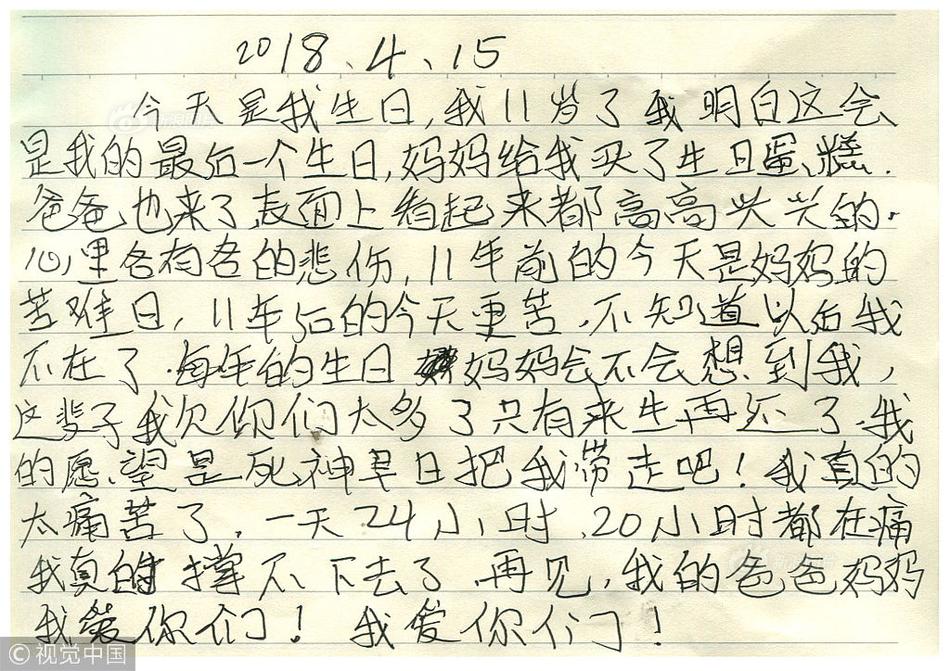 2018、4、15
今天是我生日,我11岁了我明白这会
是我的最后一个生日,妈妈给我买了生日蛋糕.
爸爸也来了,表面上看起来都高高兴兴的.
心里各有各的悲伤,11年前的今天是妈妈的
苦难日,11年后的今天更苦.不知道以后我
不在了.每年的生日妈妈会不会想到我,
这辈子我欠你们太多了只有来生再还了.我
的愿望是死神早日把我带走吧!我真的
太痛苦了.一天24小时.20小时都在痛
我真的撑不下去了.再见,我的爸爸妈妈
我爱你们!我爱你们!
©视觉中国